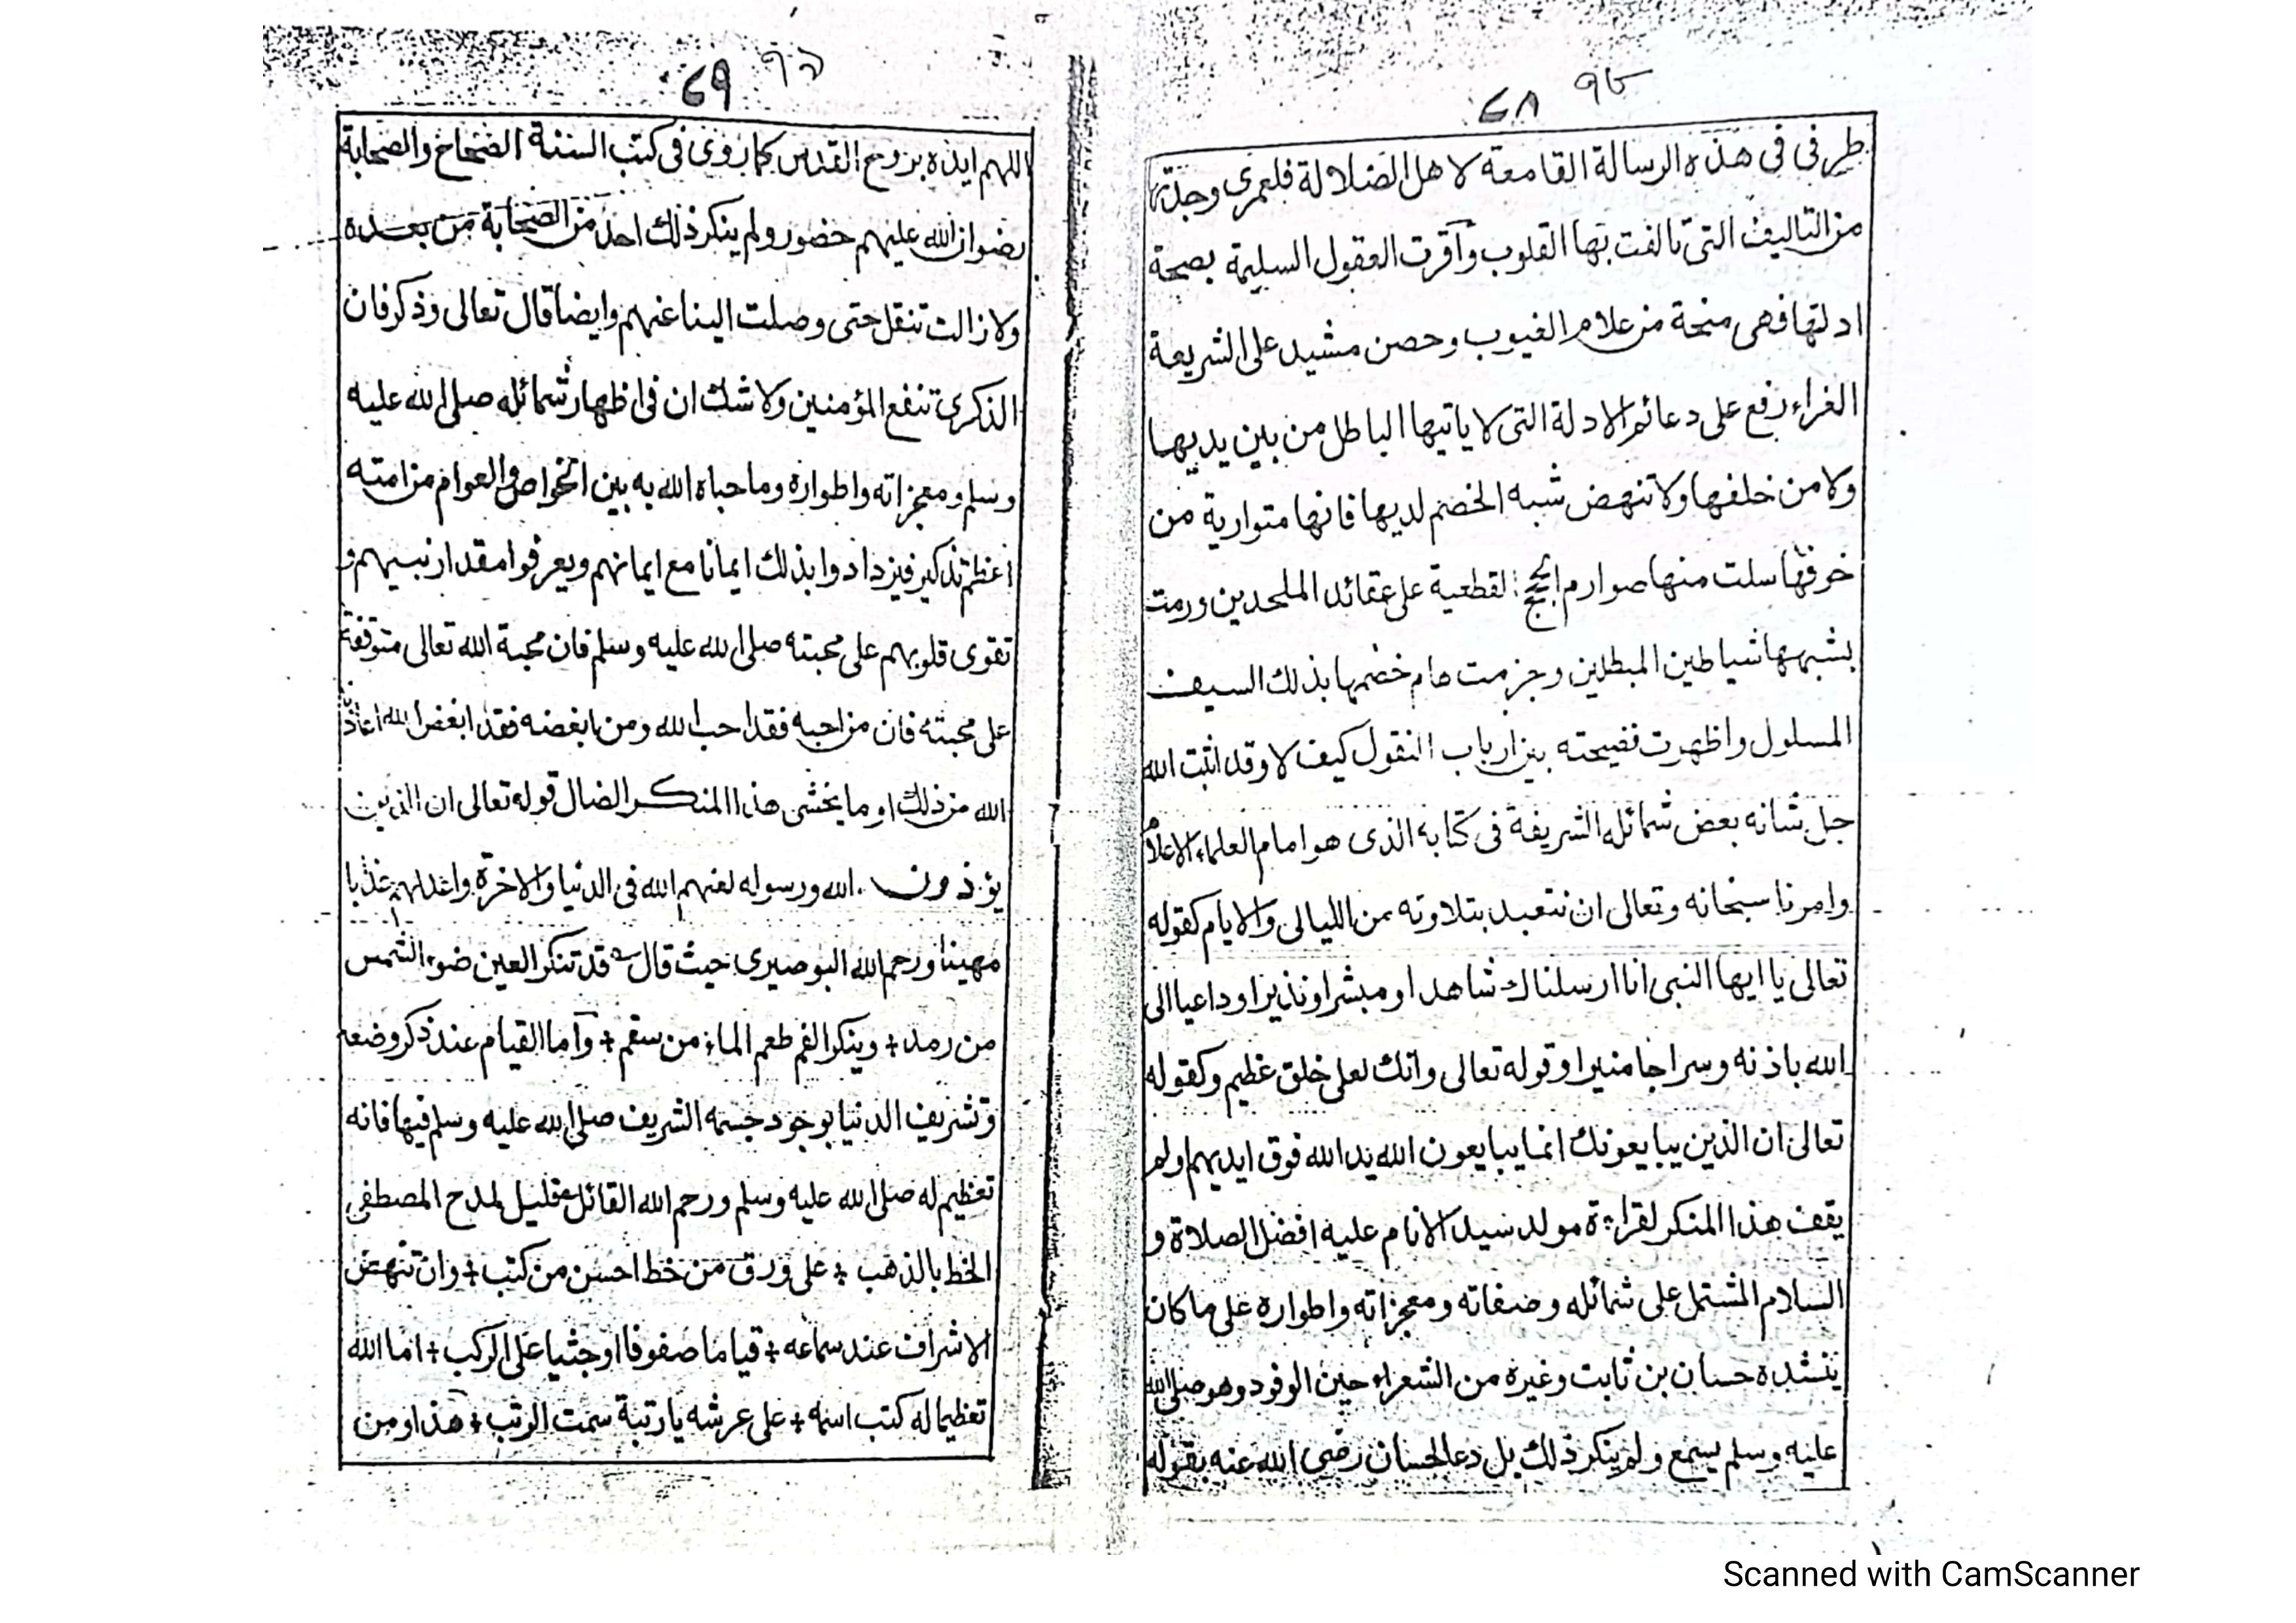 ٦٨ ٩٤
طرفى فى هذه الرسالة القامعة لاهل الضلالة فلعمرى وجدتها
من التاليف التى تالفت بها القلوب وآقرت العقول السليمة بصحة
ادلتها فهى منحة من علام الغيوب وحصن مشيد على الشريعة
الغراء رفع على دعائم الادلة التى لا ياتيها الباطل من بين يديها
ولا من خلفها ولا تنهض شبه الخصم لديها فانها متوارية من
خرفها سلت منها صوارم الحجج القطعية على عقائد الملحدين ورمت
بشبهها شياطين المبطلين وجزمت هام خضمها بذلك السيف
المسلول واظهرت نضيحته بين ارباب النقول كيف لا وقد اثبت الله
جل شانه بعض شمائله الشريفة فى كتابه الذى هو امام العلماء الاعلام
وامرنا سبحانه وتعالى ان نتعبد بتلاوته من الليالى والايام كقوله
تعالى يا ايها النبى انا ارسلناك شاهدا ومبشرا ونذيرا وداعيا الى
الله باذنه وسراجا منيرا وقوله تعالى وانك لعلى خلق عظيم وكقوله
تعالى ان الذين يبايعونك انما يبايعون الله يد الله فوق ايديهم ولم
يقف هذا المنكر لقراءة مولد سيد الانام عليه افضل الصلاة و
السلام المشتمل على شمائله وصفاته ومعجزاته واطواره على ما كان
ينشده حسان بن ثابت وغيره من الشعراء حين الوفود وهو صلى الله
عليه وسلم يسمع ولم ينكر ذلك بل دعا لحسان رضى الله عنه بقوله
٦٩ ٩٥
اللهم ايده بروح القدس كما روى فى كتب السنة الصحاح والصحابة
رضوان الله عليهم حضور ولم ينكر ذلك احد من الصحابة من بعده
ولا زالت تنقل حتى وصلت الينا عنهم وايضا قال تعالى وذكر فان
الذكرى تنفع المؤمنين ولا شك ان فى اظهار شمائله صلى الله عليه
وسلم ومعجزاته واطواره وما حباه الله به بين الخواص والعوام من امته
اعظم تذكير فيزدادوا بذلك ايمانا مع ايمانهم ويعرفوا مقدار نبيهم و
تقوى قلوبهم على محبته صلى الله عليه وسلم فان محبة الله تعالى متوقفة
على محبته فان من احبه فقد احب الله ومن ابغضه فقد ابغض الله اعاذنا
الله من ذلك او ما يخشى هذا المنكر الضال قوله تعالى ان الذين
يؤذون الله ورسوله لعنهم الله فى الدنيا والاخرة واعد لهم عذابا
مهينا ورحم الله البوصيرى حيث قال قد تنكر العين ضوء الشمس
من رمد + وينكر الفم طعم الماء من سقم + وآما القيام عند ذكر وضعه
وتشريف الدنيا بوجود جسمه الشريف صلى الله عليه وسلم فيها فانه
تعظيم له صلى الله عليه وسلم ورحم الله القائل قليل لمدح المصطفى
الخط بالذهب + على ورق من خط احسن من كتب + وان تنهض
الاشراف عند سماعه + قياما صفوفا او جثيا على الركب + اما الله
تعظيما له كتب اسمه + على عرشه يا رتبة سمت الرتب + هذا ومن
Scanned with CamScanner